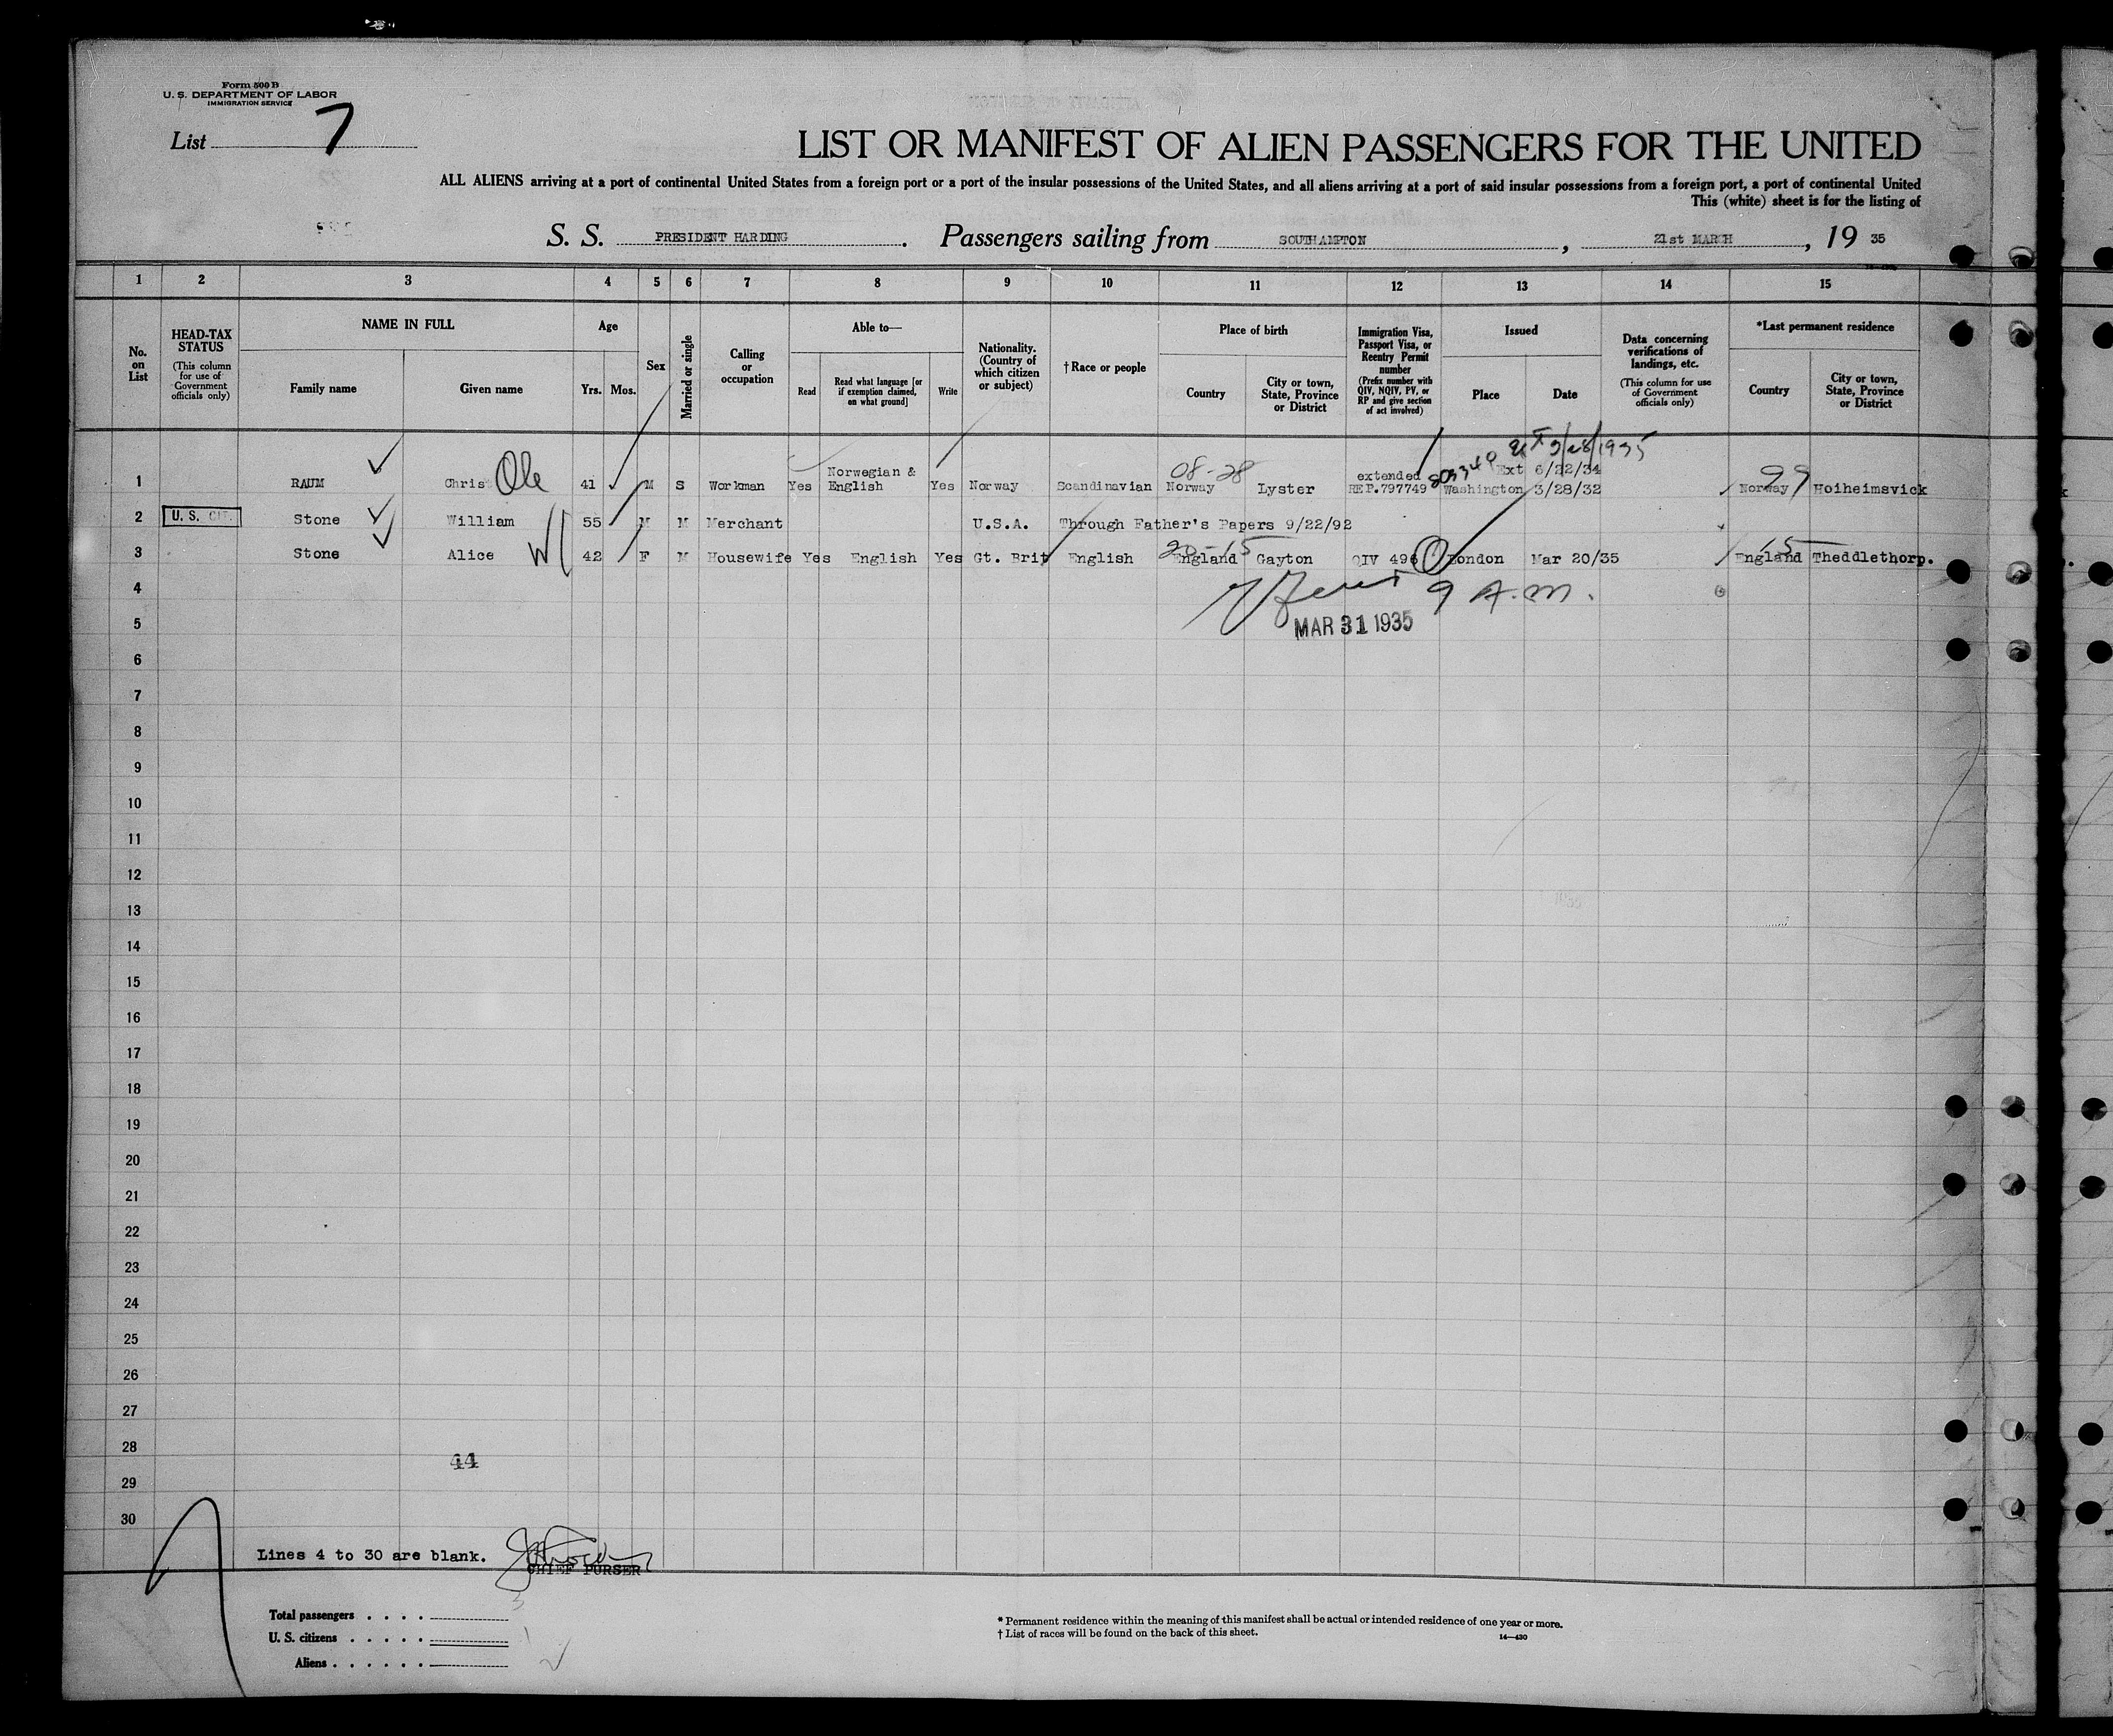 Form 500 B
U. S. DEPARTMENT OF LABOR
IMMIGRATION SERVICE
List 7
LIST OR MANIFEST OF ALIEN PASSENGERS FOR THE UNITED
ALL ALIENS arriving at a port of continental United States from a foreign port or a port of the insular possessions of the United States, and all aliens arriving at a port of said insular possessions from a foreign port, a port of continental United
This (white) sheet is for the listing of
S. S. PRESIDENT HARDING. Passengers sailing from SOUTHAMPTON, 21st MARCH, 19 35
1 2 3 4 5 6 7 8 9 10 11 12 13 14 15
No. on List
HEAD-TAX STATUS
(This column for use of Government officials only)
NAME IN FULL
Family name
Given name
Age
Yrs. Mos.
Sex
Married or single
Calling or occupation
Able to—
Read
Read what language [or if exemption claimed, on what ground]
Write
Nationality. (Country of which citizen or subject)
†Race or people
Place of birth
Country
City or town, State, Province or District
Immigration Visa, Passport Visa, or Reentry Permit number
(Prefix number with QIV, NQIV, PV, or RP and give section of act involved)
Issued
Place
Date
Data concerning verifications of landings, etc.
(This column for use of Government officials only)
*Last permanent residence
Country
City or town, State, Province or District
Ext 9/28/1935
1 RAUM Chris Ole 41 M S Workman Yes Norwegian & English Yes Norway Scandinavian 08-28 Norway Lyster extended REP.797749 Washington Ext 6/22/34 3/28/32 99 Norway Hoiheimsvick
2 U. S. CIT. Stone William 55 M M Merchant U.S.A. Through Father's Papers 9/22/92
3 Stone Alice W 42 F M Housewife Yes English Yes Gt. Brit English 20-15 England Gayton QIV 496 London Mar 20/35 15 England Theddlethorp.
4 9 A.M.
5 MAR 31 1935
6
7
8
9
10
11
12
13
14
15
16
17
18
19
20
21
22
23
24
25
26
27
28 44
29
30
Lines 4 to 30 are blank.
CHIEF PURSER
Total passengers . . . . 3
U. S. citizens . . . . . 1
Aliens . . . . . .
* Permanent residence within the meaning of this manifest shall be actual or intended residence of one year or more.
† List of races will be found on the back of this sheet.
14—430